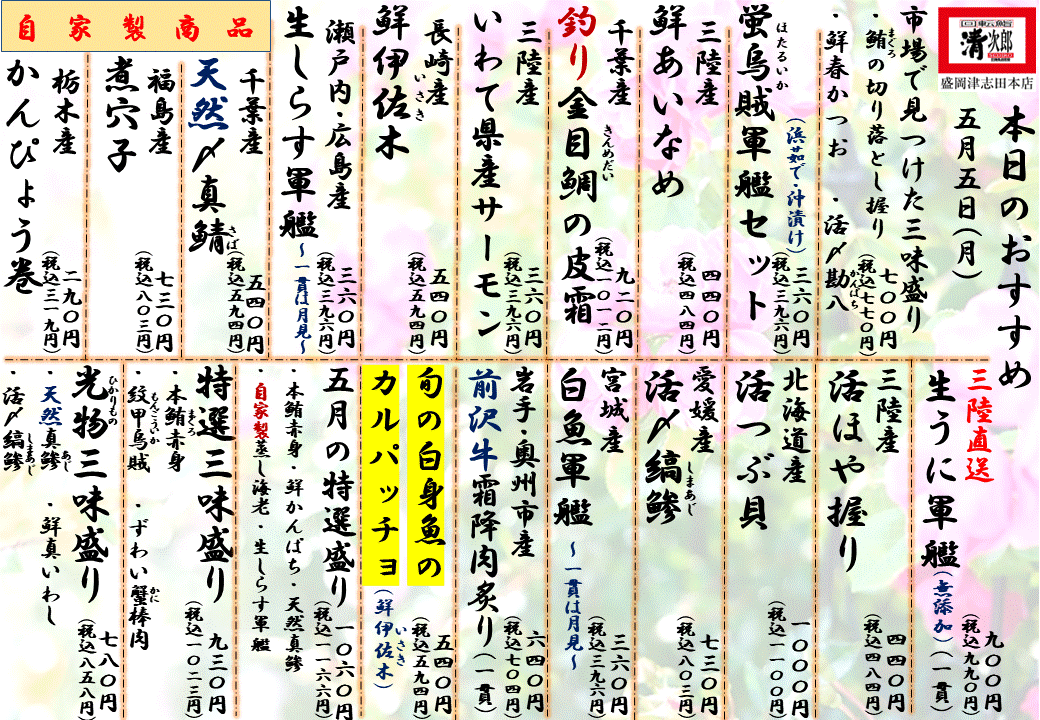 回転鮨
清次郎
盛岡津志田本店
本日のおすすめ
五月五日(月)
市場で見つけた三味盛り
・鮪の切り落とし握り
まぐろ
・鮮春かつお
・活〆勘八
かんぱち
七〇〇円
(税込七七〇円)
蛍烏賊軍艦セット
ほたるいか
(浜茹で・沖漬け)
三六〇円
(税込三九六円)
三陸産
鮮あいなめ
四四〇円
(税込四八四円)
千葉産
釣り金目鯛の皮霜
きんめだい
九二〇円
(税込一〇一二円)
三陸産
いわて県産サーモン
三六〇円
(税込三九六円)
長崎産
鮮伊佐木
いさき
五四〇円
(税込五九四円)
瀬戸内・広島産
生しらす軍艦
~一貫は月見~
三六〇円
(税込三九六円)
自家製商品
千葉産
天然〆真鯖
さば
五四〇円
(税込五九四円)
福島産
煮穴子
七三〇円
(税込八〇三円)
栃木産
かんぴょう巻
二九〇円
(税込三一九円)
三陸直送
生うに軍艦
(無添加)
(一貫)
九〇〇円
(税込九九〇円)
三陸産
活ほや握り
四四〇円
(税込四八四円)
北海道産
活つぶ貝
一〇〇〇円
(税込一一〇〇円)
愛媛産
活〆縞鯵
しまあじ
七三〇円
(税込八〇三円)
宮城産
白魚軍艦
~一貫は月見~
三六〇円
(税込三九六円)
岩手・奥州市産
前沢牛霜降肉炙り(一貫)
六四〇円
(税込七〇四円)
旬の白身魚の
カルパッチョ
(鮮伊佐木)
いさき
五四〇円
(税込五九四円)
五月の特選盛り
・本鮪赤身・鮮かんぱち・天然真鯵
・自家製蒸し海老・生しらす軍艦
一〇六〇円
(税込一一六六円)
特選三味盛り
・本鮪赤身
まぐろ
・紋甲烏賊
もんごういか
・ずわい蟹棒肉
かに
九三〇円
(税込一〇二三円)
光物三味盛り
ひかりもの
・天然真鯵
あじ
・鮮真いわし
・活〆縞鯵
しまあじ
七八〇円
(税込八五八円)